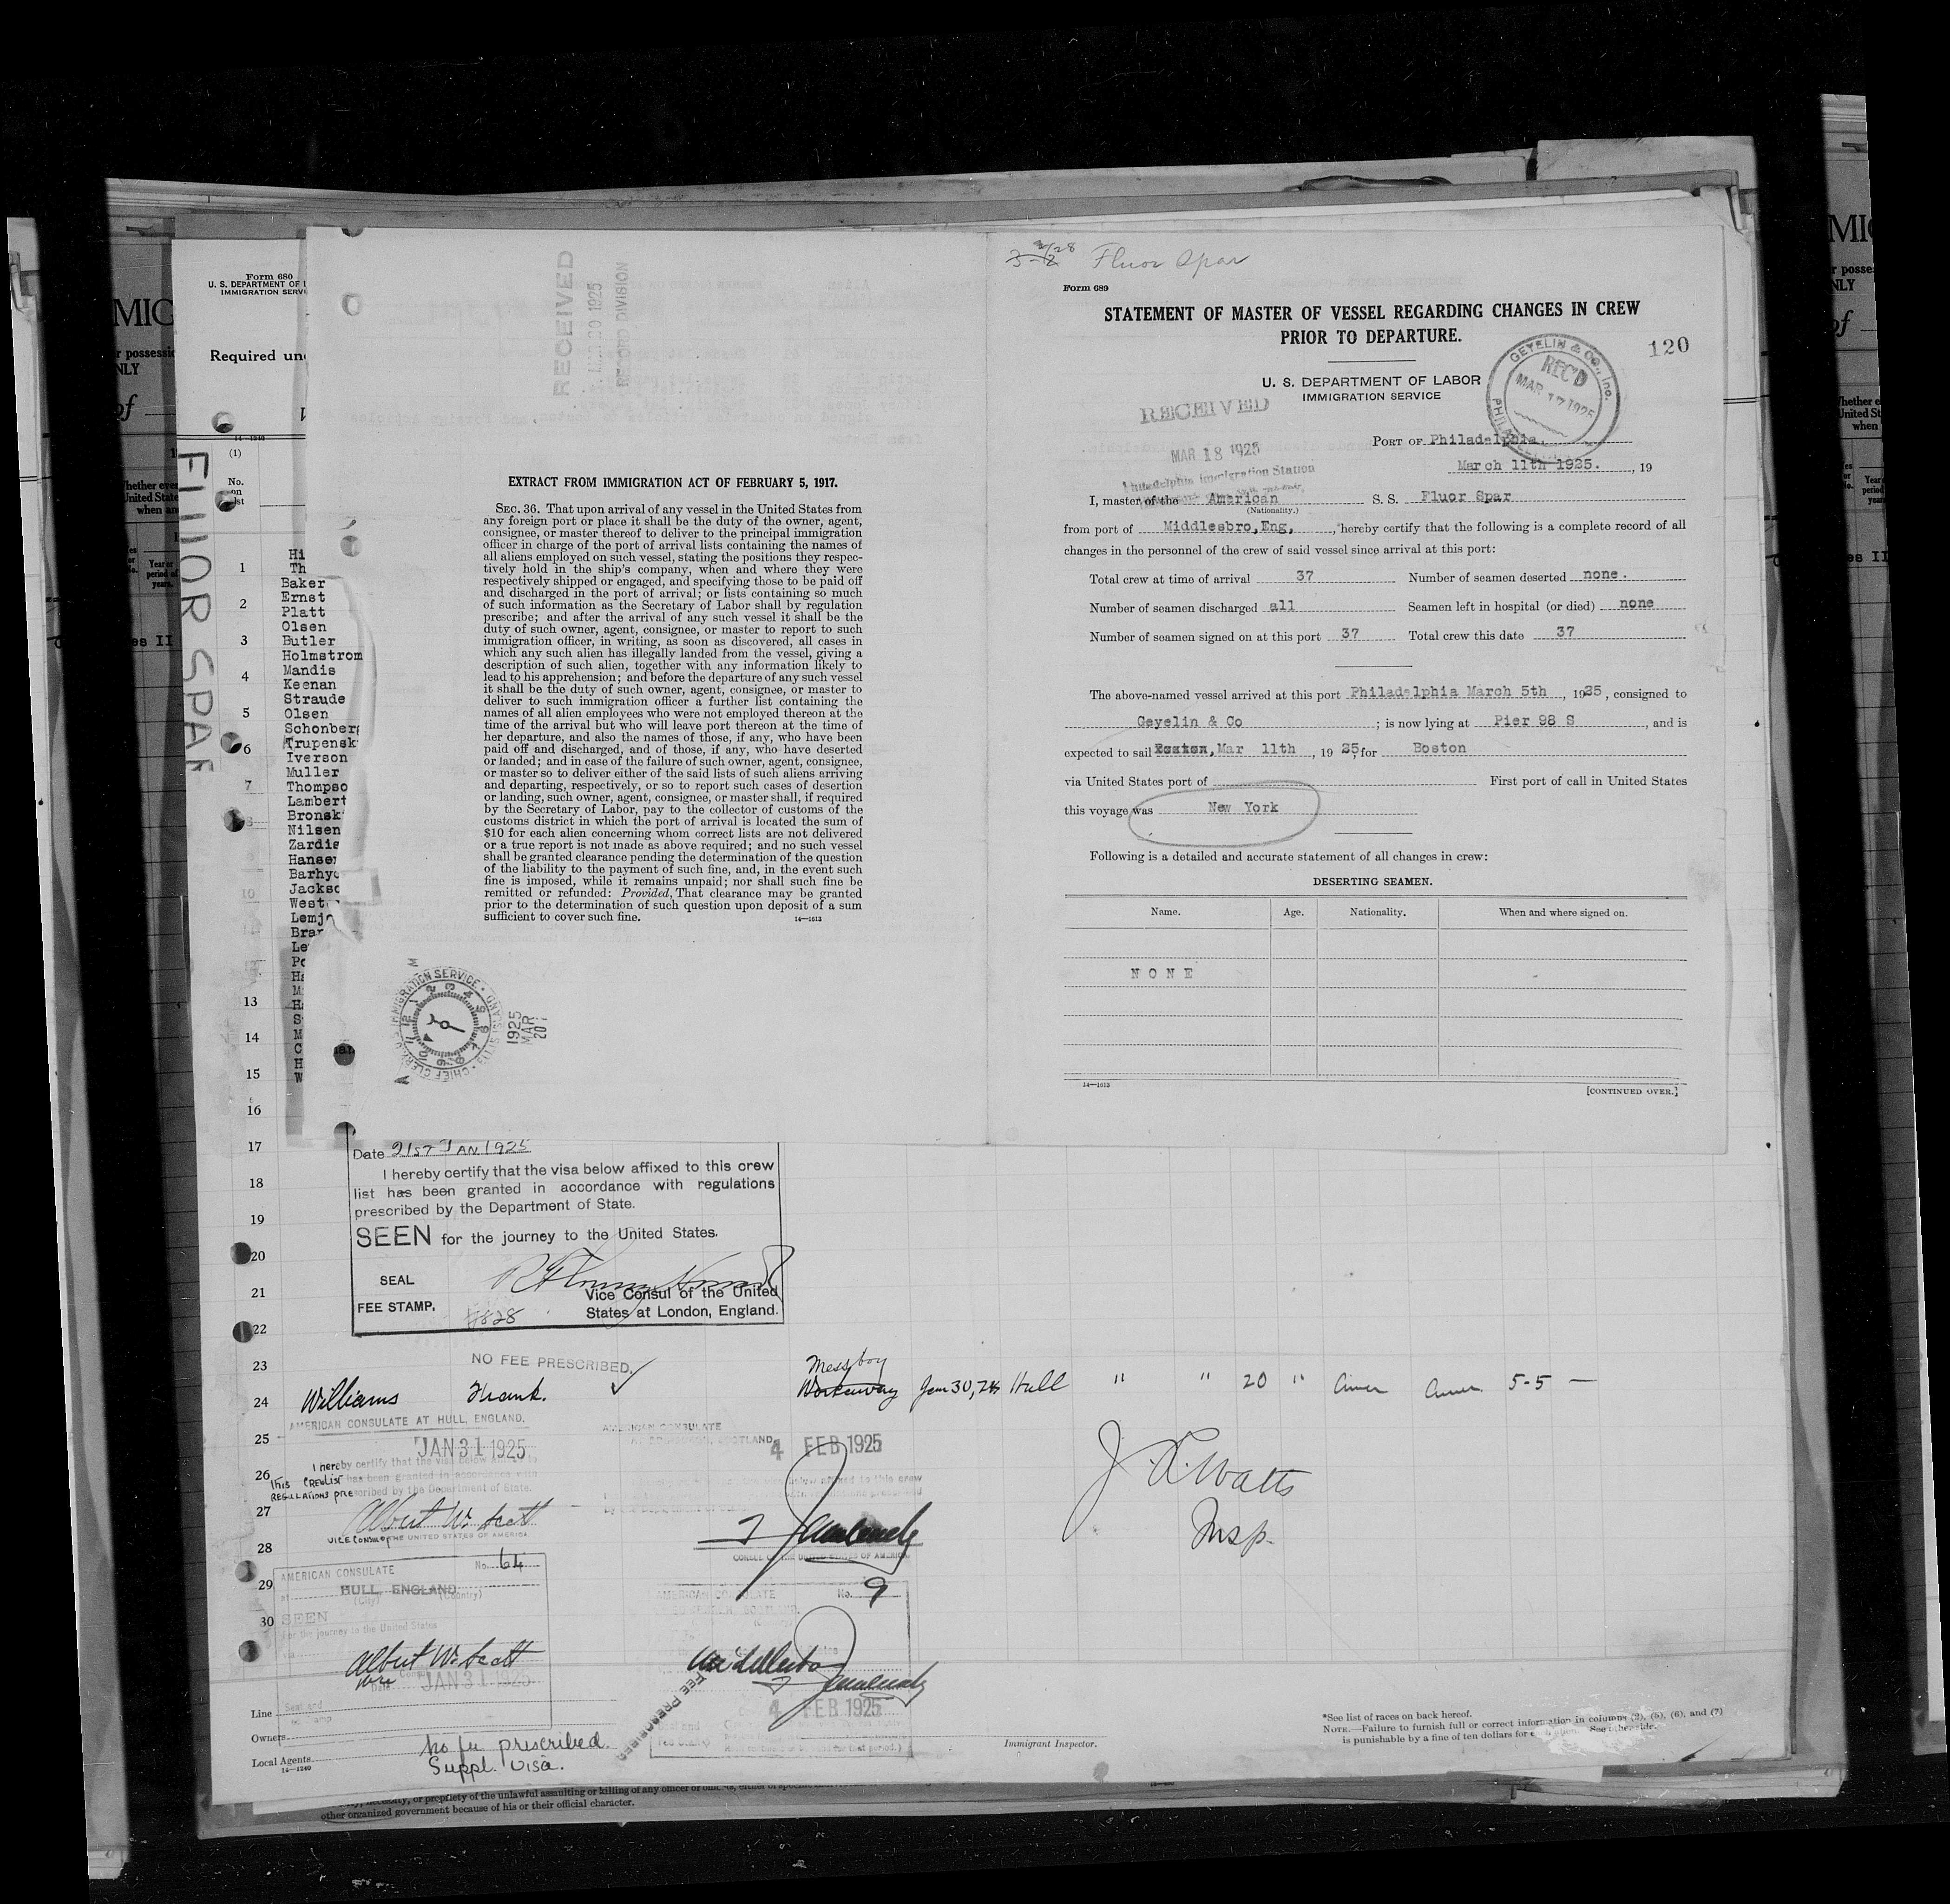 Form 680
U. S. DEPARTMENT OF
IMMIGRATION SERV
Required un
14-1240
(1)
No.
on
list
FLUOR SPAR
1
2
3
4
5
6
7
8
10
13
14
15
16
17
18
19
20
21
22
23
24
25
26
27
28
29
30
Hi
Th
Baker
Ernst
Platt
Olsen
Butler
Holmstrom
Mandis
Keenan
Straude
Olsen
Schonberg
Trupensk
Iverson
Muller
Thompso
Lambert
Bronsk
Nilsen
Zardis
Hansen
Barhyd
Jackso
West
Lemjo
Bran
Le
Po
Ha
M
H
S
M
C
H
W
RECEIVED
MAR 20 1925
RECORD DIVISION
EXTRACT FROM IMMIGRATION ACT OF FEBRUARY 5, 1917.
SEC. 36. That upon arrival of any vessel in the United States from
any foreign port or place it shall be the duty of the owner, agent,
consignee, or master thereof to deliver to the principal immigration
officer in charge of the port of arrival lists containing the names of
all aliens employed on such vessel, stating the positions they respec-
tively hold in the ship's company, when and where they were
respectively shipped or engaged, and specifying those to be paid off
and discharged in the port of arrival; or lists containing so much
of such information as the Secretary of Labor shall by regulation
prescribe; and after the arrival of any such vessel it shall be the
duty of such owner, agent, consignee, or master to report to such
immigration officer, in writing, as soon as discovered, all cases in
which any such alien has illegally landed from the vessel, giving a
description of such alien, together with any information likely to
lead to his apprehension; and before the departure of any such vessel
it shall be the duty of such owner, agent, consignee, or master to
deliver to such immigration officer a further list containing the
names of all alien employees who were not employed thereon at the
time of the arrival but who will leave port thereon at the time of
her departure, and also the names of those, if any, who have been
paid off and discharged, and of those, if any, who have deserted
or landed; and in case of the failure of such owner, agent, consignee,
or master so to deliver either of the said lists of such aliens arriving
and departing, respectively, or so to report such cases of desertion
or landing, such owner, agent, consignee, or master shall, if required
by the Secretary of Labor, pay to the collector of customs of the
customs district in which the port of arrival is located the sum of
$10 for each alien concerning whom correct lists are not delivered
or a true report is not made as above required; and no such vessel
shall be granted clearance pending the determination of the question
of the liability to the payment of such fine, and, in the event such
fine is imposed, while it remains unpaid; nor shall such fine be
remitted or refunded: Provided, That clearance may be granted
prior to the determination of such question upon deposit of a sum
sufficient to cover such fine. 14-1613
IMMIGRATION SERVICE
ELLIS ISLAND
CHIEF CLERK
1925
MAR
20
Fluor Spar
Form 689
STATEMENT OF MASTER OF VESSEL REGARDING CHANGES IN CREW
PRIOR TO DEPARTURE.
120
U. S. DEPARTMENT OF LABOR
IMMIGRATION SERVICE
GEYELIN & CO., Inc.
REC'D
MAR 17 1925
PHILADELPHIA
RECEIVED
MAR 18 1925
Philadelphia Immigration Station
PORT OF Philadelphia.
March 11th 1925. , 19
I, master of the American S. S. Fluor Spar
(Nationality.)
from port of Middlesbro,Eng, , hereby certify that the following is a complete record of all
changes in the personnel of the crew of said vessel since arrival at this port:
Total crew at time of arrival 37 Number of seamen deserted none.
Number of seamen discharged all Seamen left in hospital (or died) none
Number of seamen signed on at this port 37 Total crew this date 37
The above-named vessel arrived at this port Philadelphia March 5th , 1925, consigned to
Geyelin & Co ; is now lying at Pier 98 S , and is
expected to sail Boston, Mar 11th , 19 25, for Boston
via United States port of First port of call in United States
this voyage was New York
Following is a detailed and accurate statement of all changes in crew:
DESERTING SEAMEN.
Name. Age. Nationality. When and where signed on.
NONE
14-1613 [CONTINUED OVER.]
Date 21ST JAN. 1925
I hereby certify that the visa below affixed to this crew
list has been granted in accordance with regulations
prescribed by the Department of State.
SEEN for the journey to the United States.
SEAL
Vice Consul of the United
FEE STAMP.
States at London, England.
NO FEE PRESCRIBED.
Messboy
Williams Frank. Workaway Jan 30, 25 Hull " " 20 " Amer Amer 5-5 —
AMERICAN CONSULATE AT HULL, ENGLAND.
JAN 31 1925
I hereby certify that the visa below affixed to
This CREW LIST has been granted in accordance with
REGULATIONS prescribed by the Department of State.
Albert W. Scott
VICE CONSUL OF THE UNITED STATES OF AMERICA
AMERICAN CONSULATE
4 FEB 1925
CONSUL OF THE UNITED STATES OF AMERICA
J. L. Watts
Insp.
AMERICAN CONSULATE No. 64
at HULL, ENGLAND
(City) (Country)
SEEN
for the journey to the United States
Albert W. Scott
Vice
JAN 31 1925
AMERICAN CONSULATE No. 9
Middlesbro
4 FEB 1925
FEE PRESCRIBED
Line
Owners
Local Agents
14-1240
No fee prescribed.
Suppl. visa.
Immigrant Inspector.
*See list of races on back hereof.
NOTE.—Failure to furnish full or correct information in columns (2), (5), (6), and (7)
is punishable by a fine of ten dollars for See other side.
or propriety of the unlawful assaulting or killing of any officer or
other organized government because of his or their official character.